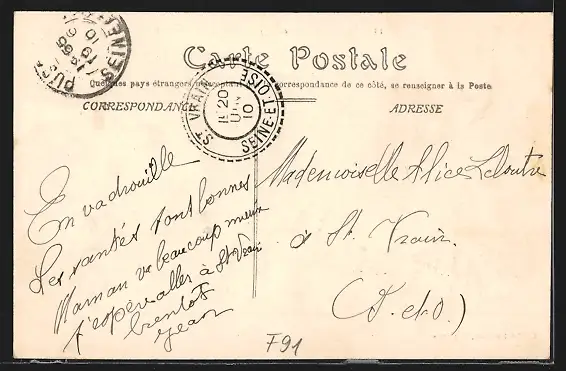 Carte Postale
Quelques pays étrangers n'acceptant pas la correspondance de ce côté, se renseigner à la Poste
CORRESPONDANCE
ADRESSE
SEINE
ST VRAIN
SEINE-ET-OISE
20
10
En vadrouille
Les santés sont bonnes
Maman va beaucoup mieux
J'espère aller à St Vrain
bientôt
Jean
Mademoiselle Alice
à St. Vrain.
(S.-et-O.)
F91